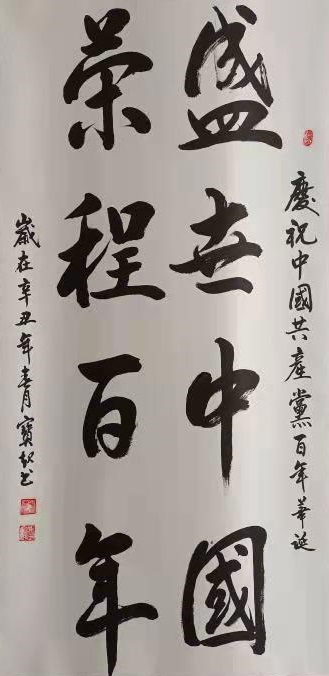 慶祝中國共產黨百年華誕
盛世中國
榮程百年
歲在辛丑年春月寶
书